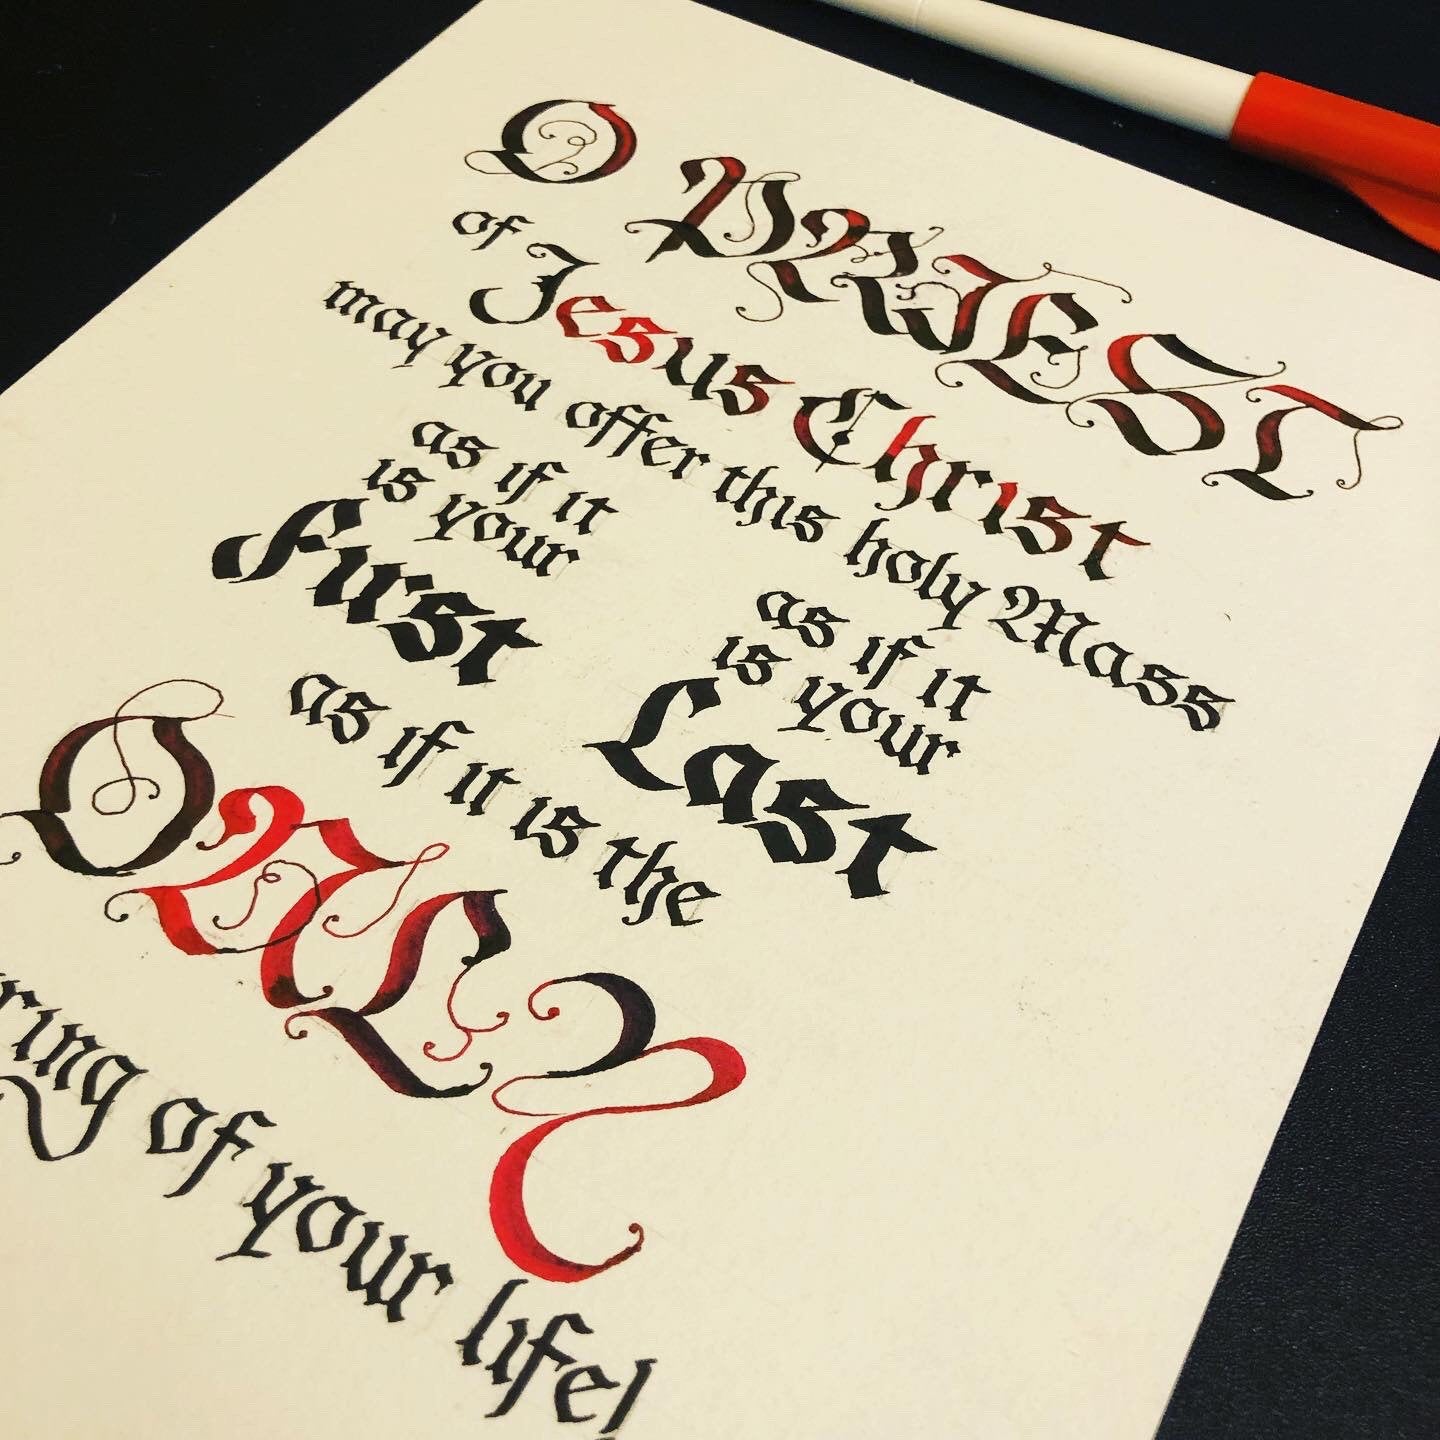 O PRIEST
of Jesus Christ
may you offer this holy Mass
as if it
is your
First
as if it
is your
Last
as if it is the
ONLY
ring of your life!